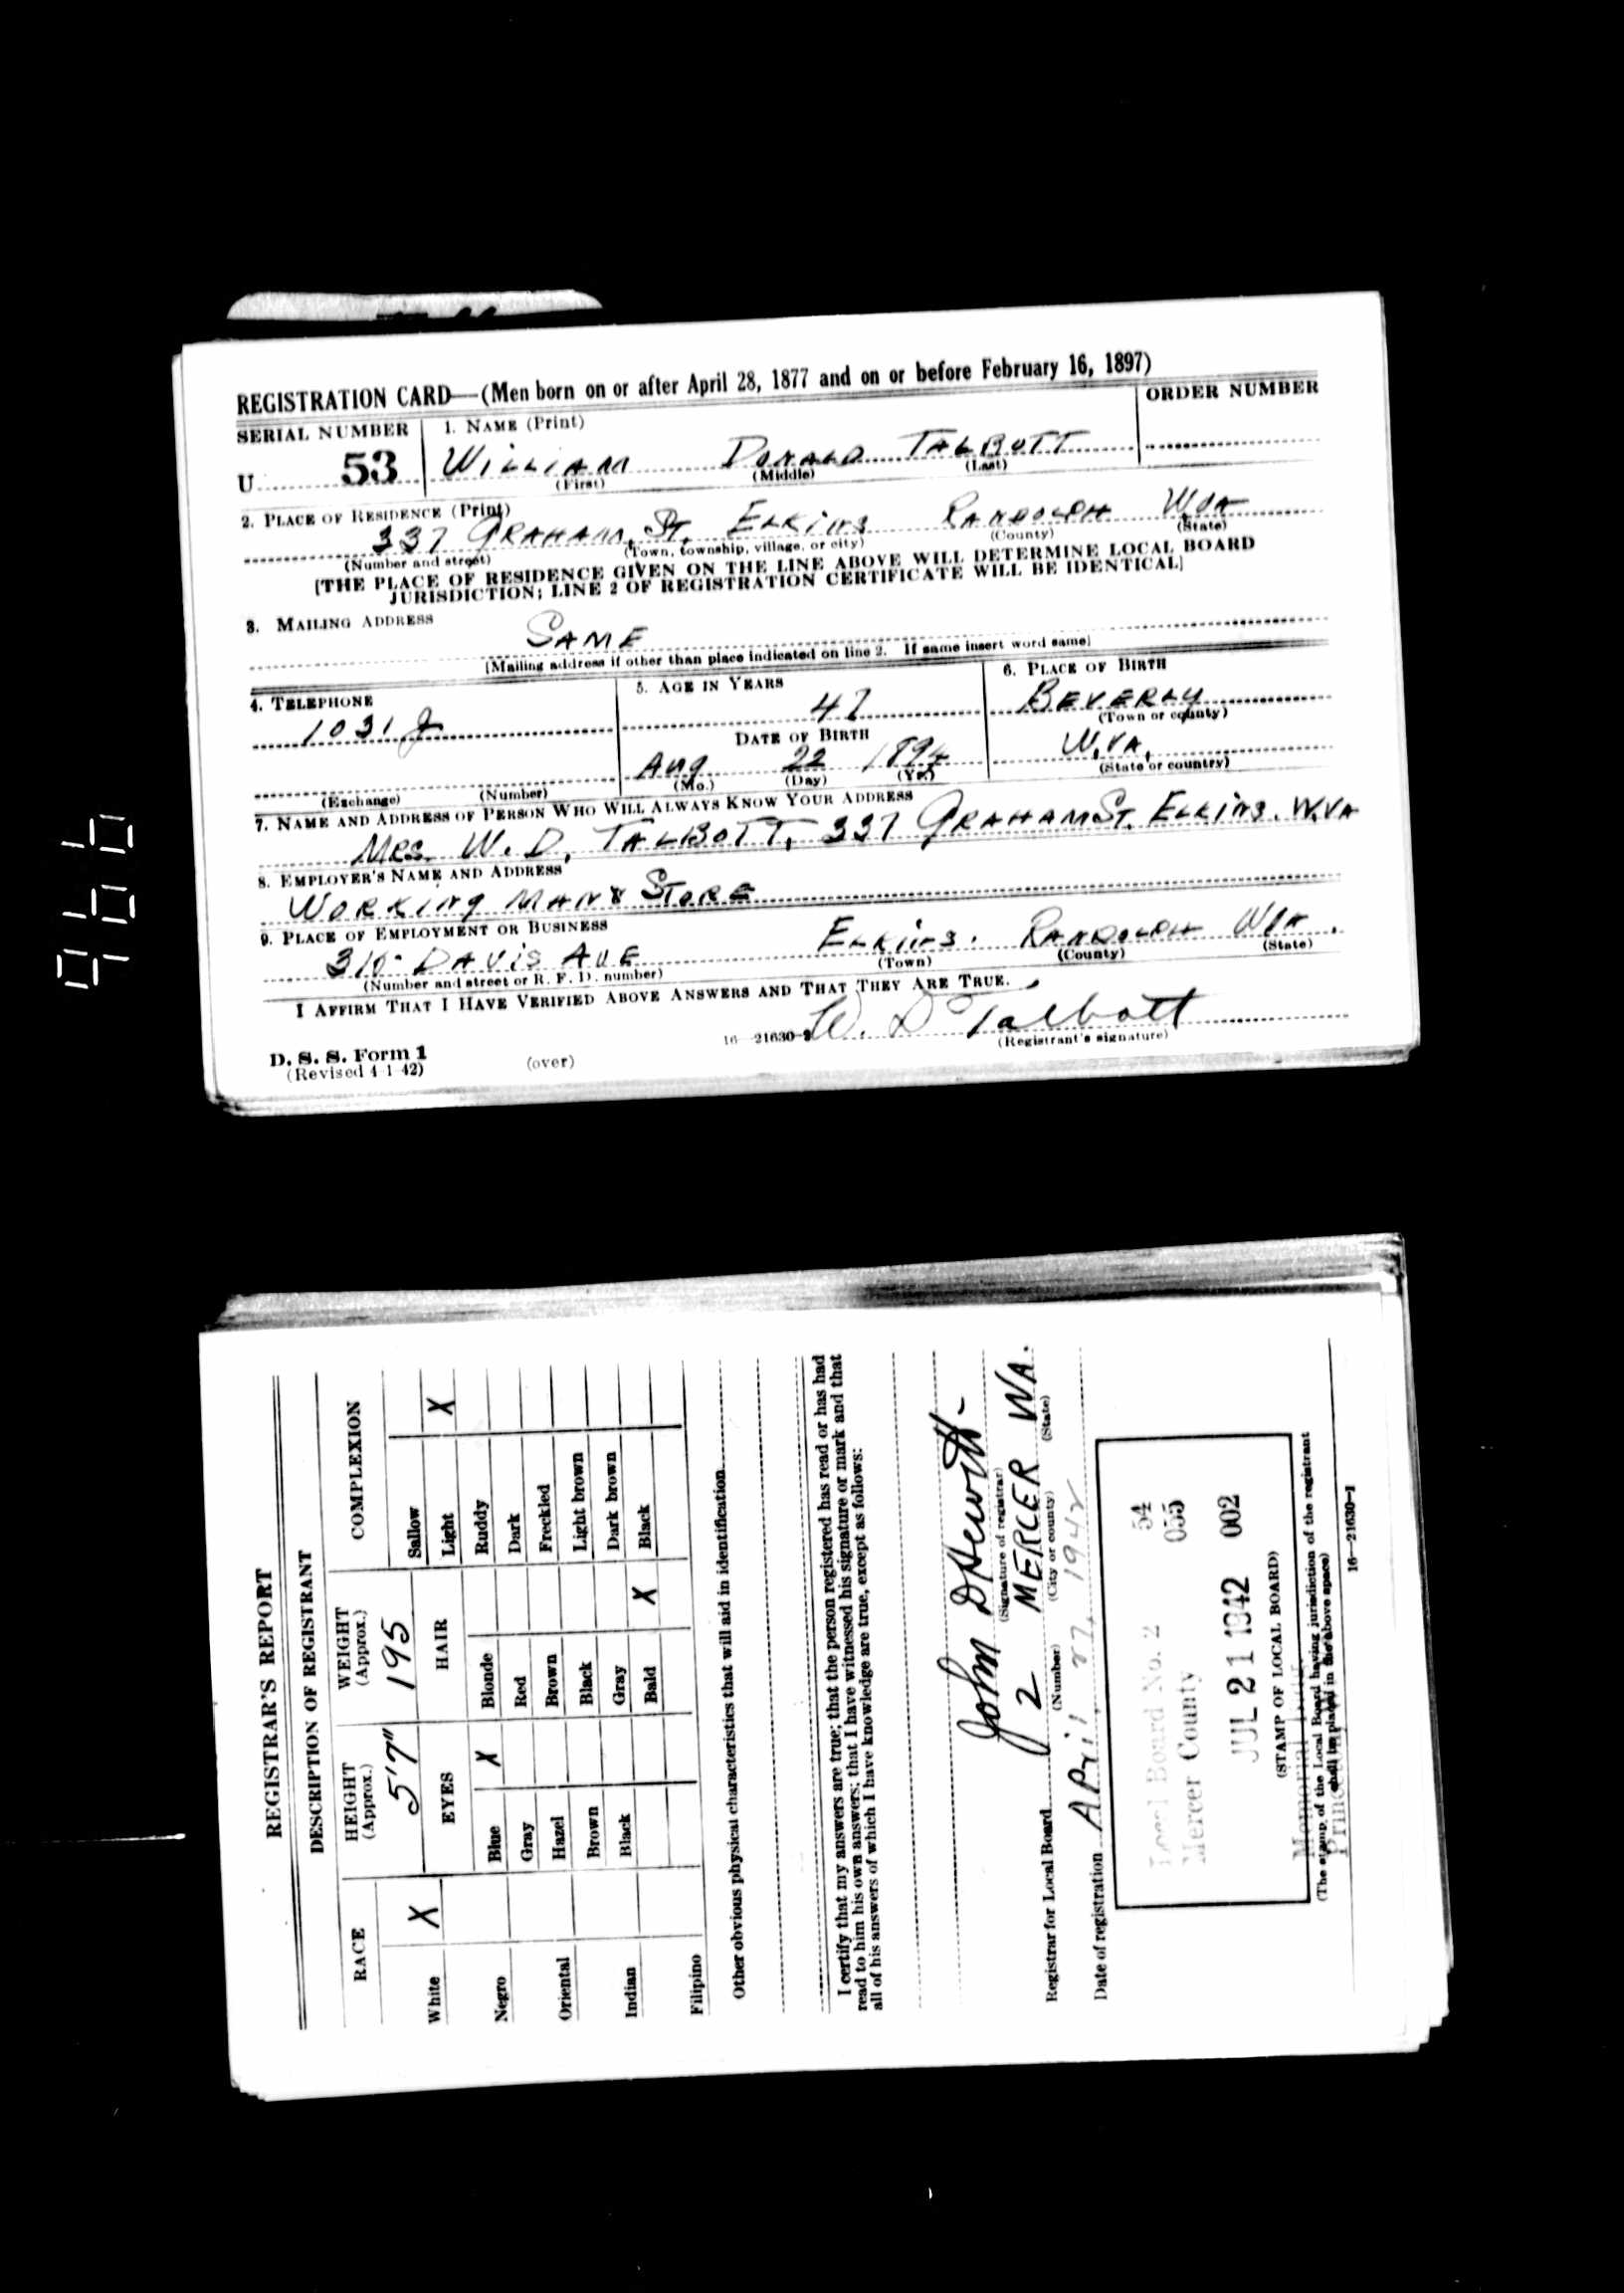 REGISTRATION CARD—(Men born on or after April 28, 1877 and on or before February 16, 1897)
SERIAL NUMBER 1. NAME (Print) ORDER NUMBER
U 53 WILLIAM DONALD TALBOTT
(First) (Middle) (Last)
2. PLACE OF RESIDENCE (Print)
337 GRAHAM, ST. ELKINS RANDOLPH W.VA
(Number and street) (Town, township, village, or city) (County) (State)
[THE PLACE OF RESIDENCE GIVEN ON THE LINE ABOVE WILL DETERMINE LOCAL BOARD
JURISDICTION; LINE 2 OF REGISTRATION CERTIFICATE WILL BE IDENTICAL]
3. MAILING ADDRESS
SAME
[Mailing address if other than place indicated on line 2. If same insert word same]
4. TELEPHONE 5. AGE IN YEARS 6. PLACE OF BIRTH
1031 J 47 BEVERLY
(Town or county)
DATE OF BIRTH
Aug 22 1894 W.VA.
(Exchange) (Number) (Mo.) (Day) (Yr.) (State or country)
7. NAME AND ADDRESS OF PERSON WHO WILL ALWAYS KNOW YOUR ADDRESS
MRS. W. D. TALBOTT, 337 GRAHAM ST. ELKINS. W.VA
8. EMPLOYER'S NAME AND ADDRESS
WORKING MANS STORE
9. PLACE OF EMPLOYMENT OR BUSINESS
310- DAVIS AVE ELKINS. RANDOLPH W.VA.
(Number and street or R. F. D. number) (Town) (County) (State)
I AFFIRM THAT I HAVE VERIFIED ABOVE ANSWERS AND THAT THEY ARE TRUE.
W. D Talbott
D. S. S. Form 1 (over) 16—21630-2 (Registrant's signature)
(Revised 4-1-42)
9766
REGISTRAR'S REPORT
DESCRIPTION OF REGISTRANT
RACE HEIGHT (Approx.) WEIGHT (Approx.) COMPLEXION
5'7" 195 Sallow
White X EYES HAIR Light X
Blue X Blonde Ruddy
Negro Gray Red Dark
Hazel Brown Freckled
Oriental Brown Black Light brown
Black Gray Dark brown
Indian Bald X Black
Filipino
Other obvious physical characteristics that will aid in identification
I certify that my answers are true; that the person registered has read or has had
read to him his own answers; that I have witnessed his signature or mark and that
all of his answers of which I have knowledge are true, except as follows:
John D Hewitt-
(Signature of registrar)
Registrar for Local Board 2 MERCER WVA.
(Number) (City or county) (State)
Date of registration April 27, 1942
Local Board No. 2 54
Mercer County 055
JUL 21 1942 002
(STAMP OF LOCAL BOARD)
(The stamp of the Local Board having jurisdiction of the registrant
shall be placed in the above space)
16—21630-1